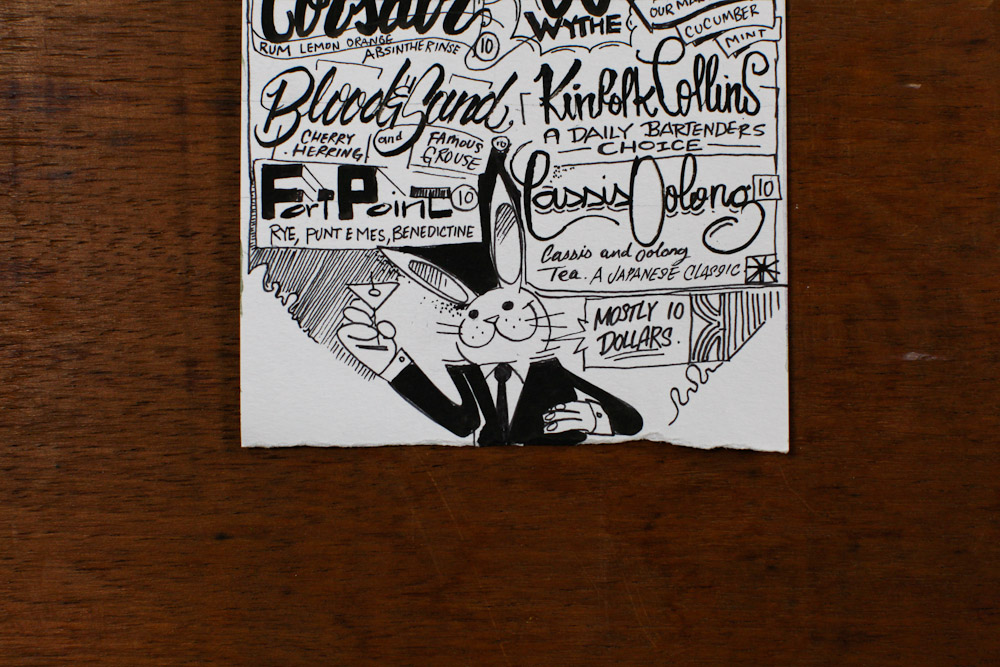 Corsair
RUM LEMON ORANGE
ABSINTHE RINSE
10
WYTHE
CUCUMBER
MINT
Blood & Sand.
CHERRY
HERRING
and
FAMOUS
GROUSE
10
Kinfolk Collins
A DAILY BARTENDERS
CHOICE
Fort Point
10
RYE, PUNT E MES, BENEDICTINE
Cassis Oolong
10
Cassis and oolong
Tea. A JAPANESE CLASSIC
MOSTLY 10
DOLLARS.